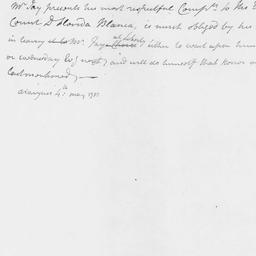 Mr. Jay presents his most respectful Compts. to his E
Count D Florida Blanca, is much obliged by his
in leaving Mr. Jay at Liberty either to wait upon him
or wednesday Evg next; and will do himself that honor on
last mentioned
Aranjues 4th. may 178